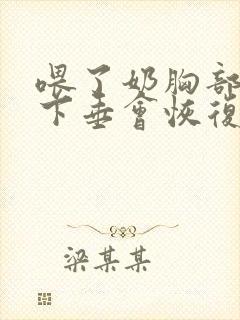 喂了奶胸部
下垂會恢復
梁某某